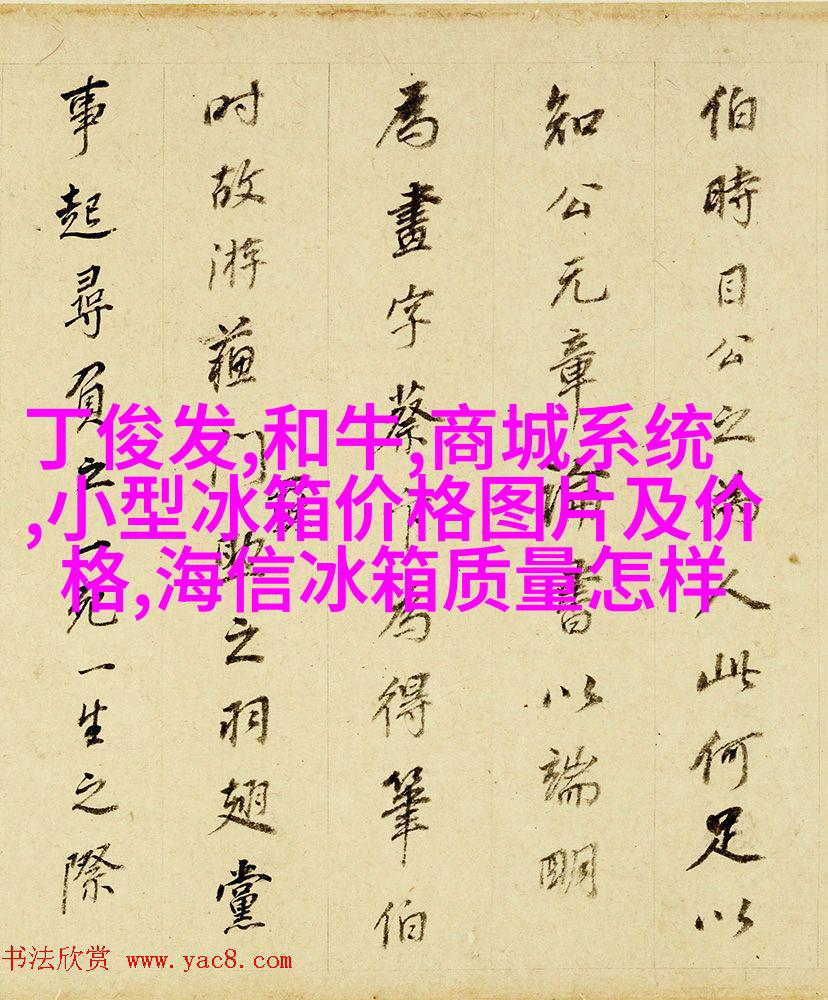 丁俊发,和牛,商城系统
,小型冰箱价格图片及价
格,海信冰箱质量怎样
伯時目公之為人此何足以
知公元章書以端明
為畫字蔡為得筆伯
时故游蘇門之羽翅黨
事起尋負之一死一生之際
书法欣赏 www.yac8.com